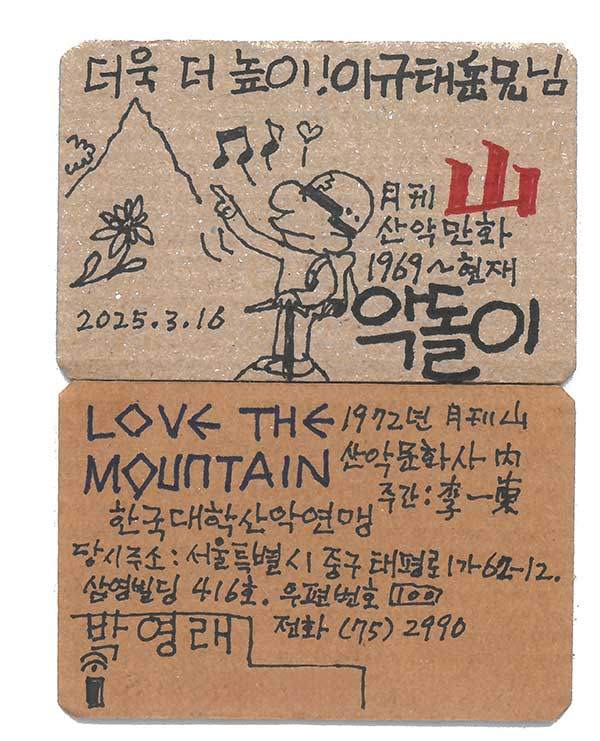 더욱 더 높이! 이규태岳兄님
月刊 山
산악만화
1969~현재
악돌이
2025.3.16
LOVE THE
MOUNTAIN
1972년 月刊 山
산악문화사 內
주간: 李一東
한국대학산악연맹
당시주소: 서울특별시 중구 태평로1가 62-12.
삼영빌딩 416호. 우편번호 100
박영래 전화 (75) 2990